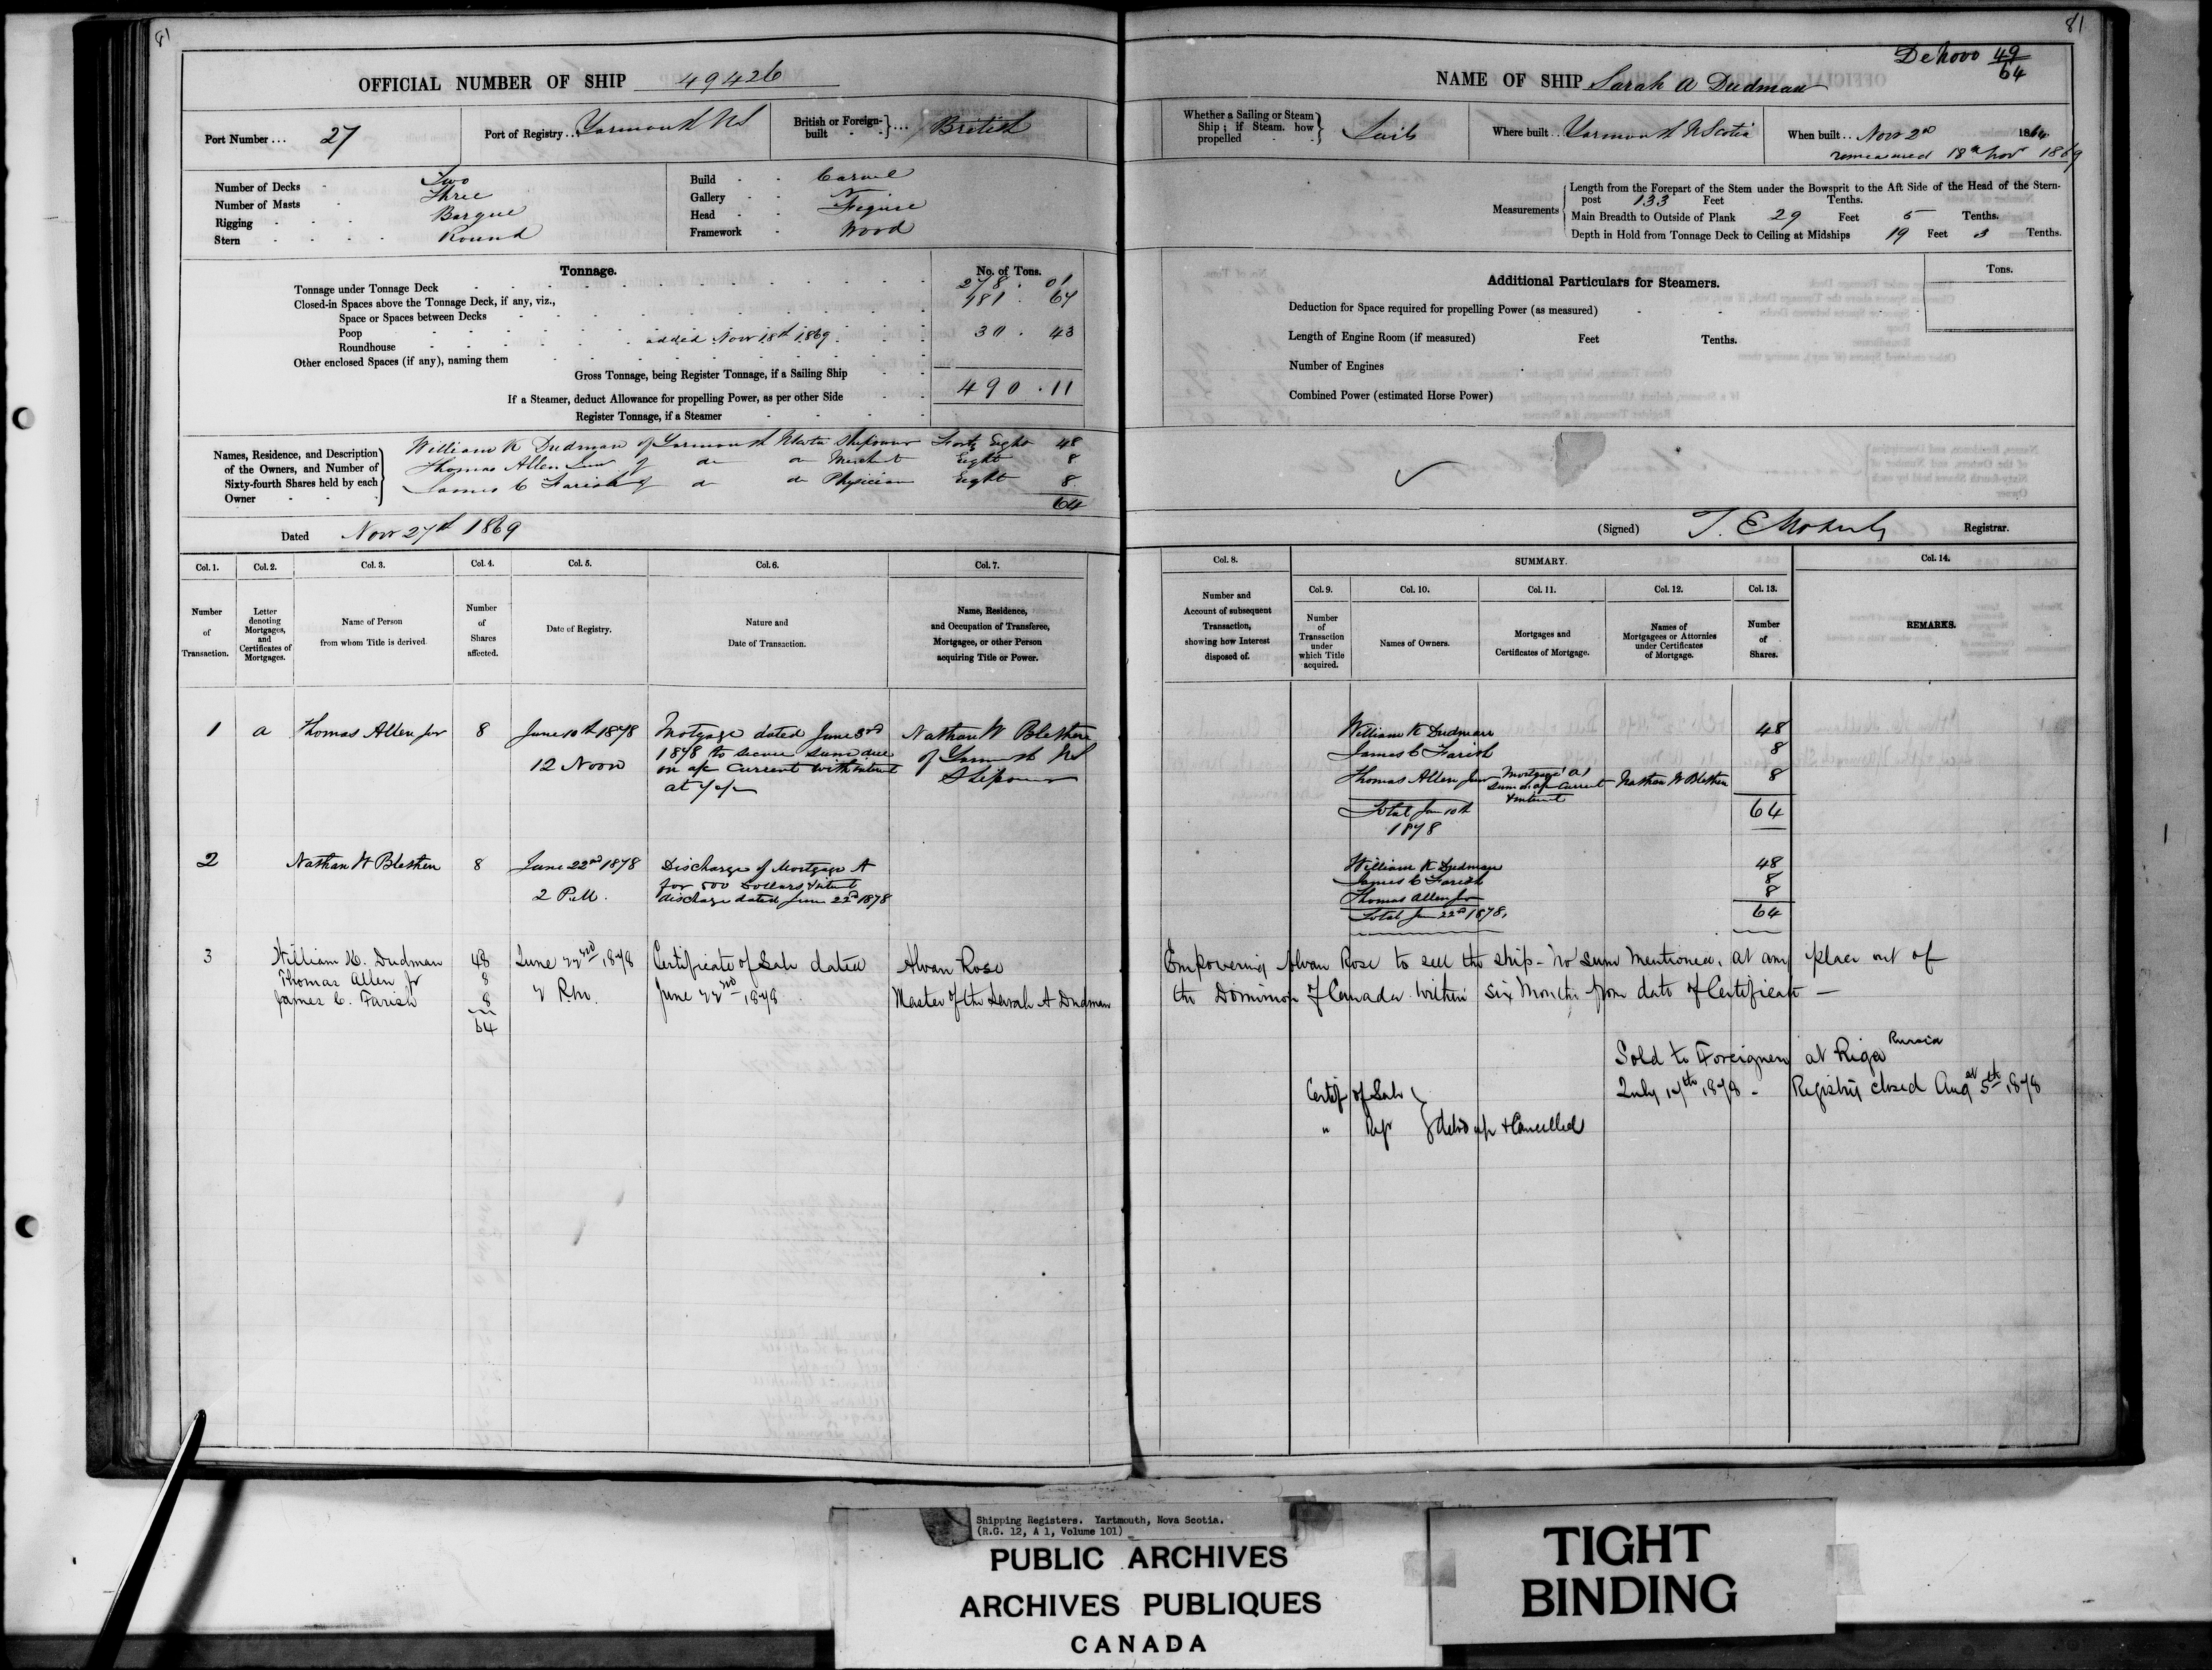 81
OFFICIAL NUMBER OF SHIP 49426
Port Number ... 27
Port of Registry .. Yarmouth NS
British or Foreign-built } ... British
Number of Decks - Two
Number of Masts - Three
Rigging - Barque
Stern - Round
Build - Carvel
Gallery -
Head - Figure
Framework - Wood
Tonnage.
No. of Tons.
Tonnage under Tonnage Deck 278 . 01
Closed-in Spaces above the Tonnage Deck, if any, viz., 181 . 67
Space or Spaces between Decks
Poop
Roundhouse added Nov 18th 1869 30 . 43
Other enclosed Spaces (if any), naming them
Gross Tonnage, being Register Tonnage, if a Sailing Ship 490 . 11
If a Steamer, deduct Allowance for propelling Power, as per other Side
Register Tonnage, if a Steamer
Names, Residence, and Description of the Owners, and Number of Sixty-fourth Shares held by each Owner
William K Dudman of Yarmouth NScotia Shipowner Forty Eight 48
Thomas Allen Junr of do do Merchant Eight 8
James C Farish of do do Physician Eight 8
64
Dated Nov 27th 1869
Col. 1. Col. 2. Col. 3. Col. 4. Col. 5. Col. 6. Col. 7.
Number of Transaction.
Letter denoting Mortgages, and Certificates of Mortgages.
Name of Person from whom Title is derived.
Number of Shares affected.
Date of Registry.
Nature and Date of Transaction.
Name, Residence, and Occupation of Transferee, Mortgagee, or other Person acquiring Title or Power.
1 a Thomas Allen Jnr 8 June 10th 1878 Motgage dated June 3rd Nathan W Blethen
1878 to secure sum due of Yarmouth NS
12 Noon on a/c Current with interest Shipowner
at 7 %
2 Nathan W Blethen 8 June 22nd 1878 Discharge of Mortgage A
for 500 Dollars & interest
2 P.M. discharge dated June 22d 1878
3 William K. Dudman 48 June 22nd 1878 Certificate of Sale dated Alvan Rose
Thomas Allen Jr 8
James C. Farish 8 2 P.m. June 22nd 1878 Master of the Sarah A Dudman
64
81
De Novo 49/64
NAME OF SHIP Sarah A Dudman
Whether a Sailing or Steam Ship; if Steam. how propelled } Sails
Where built ... Yarmouth N Scotia
When built .. Nov 2nd 1864
remeasured 18th Nov 1869
Measurements
Length from the Forepart of the Stem under the Bowsprit to the Aft Side of the Head of the Stern-
post 133 Feet Tenths.
Main Breadth to Outside of Plank 29 Feet 5 Tenths.
Depth in Hold from Tonnage Deck to Ceiling at Midships 19 Feet Tenths.
Additional Particulars for Steamers.
Tons.
Deduction for Space required for propelling Power (as measured)
Length of Engine Room (if measured) Feet Tenths.
Number of Engines
Combined Power (estimated Horse Power)
(Signed) Registrar.
Col. 8. SUMMARY. Col. 14.
Col. 9. Col. 10. Col. 11. Col. 12. Col. 13.
Number and Account of subsequent Transaction, showing how Interest disposed of.
Number of Transaction under which Title acquired.
Names of Owners.
Mortgages and Certificates of Mortgage.
Names of Mortgagees or Attornies under Certificates of Mortgage.
Number of Shares.
REMARKS.
William K Dudman 48
James C Farish 8
Thomas Allen Junr Mortgage 'A' sum on a/c Current & interest Nathan W Blethen 8
Total Jun 10th 1878 64
William K Dudman 48
James C Farish 8
Thomas Allen Jnr 8
Total Jun 22d 1878, 64
Empowering Alvan Rose to sell the ship - no sum mentioned, at any place out of
the Dominion of Canada within six months from date of Certificate —
Sold to Foreigners at Riga Russia
July 17th 1878 - Registry closed Augst 5th 1878
Certif of Sale
" Regr } deliv'd up & Cancelled
Shipping Registers. Yartmouth, Nova Scotia.
(R.G. 12, A 1, Volume 101)
PUBLIC ARCHIVES
ARCHIVES PUBLIQUES
CANADA
TIGHT
BINDING